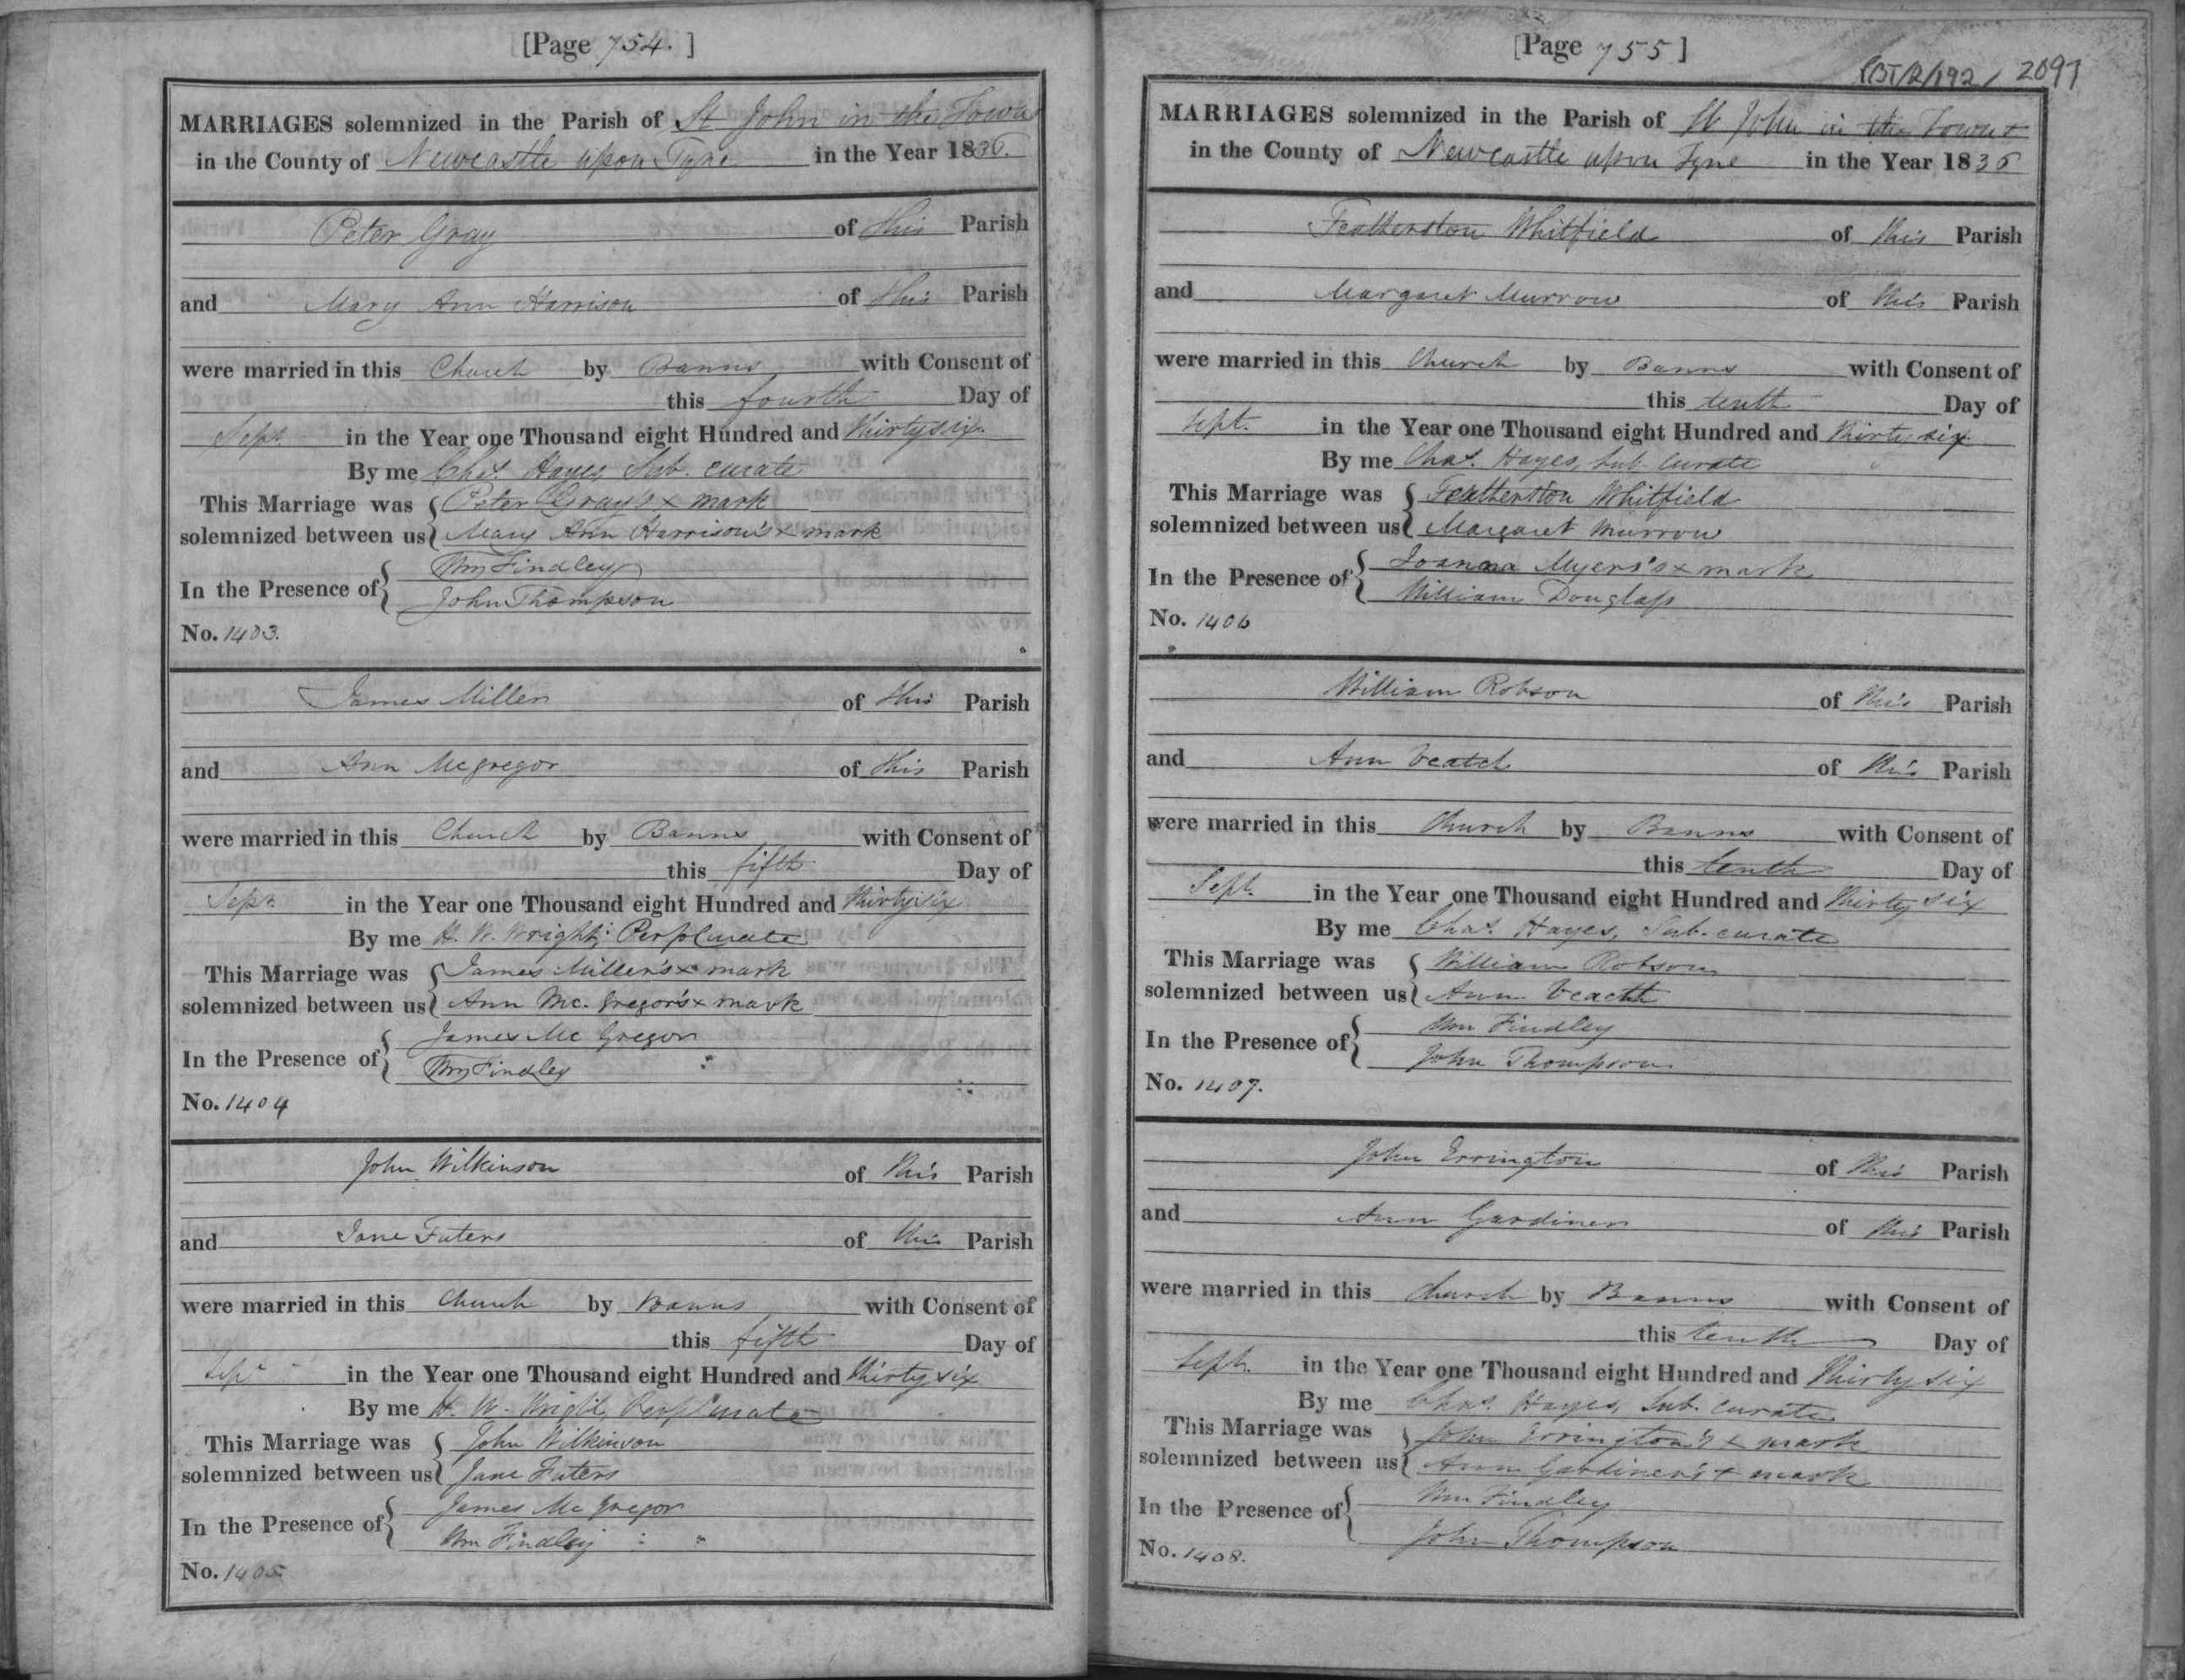 [Page 754.]
MARRIAGES solemnized in the Parish of St John in the Town
in the County of Newcastle upon Tyne in the Year 1836.
Peter Gray of this Parish
and Mary Ann Harrison of this Parish
were married in this Church by Banns with Consent of
this fourth Day of
Sept. in the Year one Thousand eight Hundred and thirty six.
By me Chas. Hayes, Sub. curate
This Marriage was { Peter Gray's x mark
solemnized between us { Mary Ann Harrison's x mark
In the Presence of { Wm Findley
John Thompson
No. 1403.
James Miller of this Parish
and Ann Mcgregor of this Parish
were married in this Church by Banns with Consent of
this fifth Day of
Sept. in the Year one Thousand eight Hundred and thirty six
By me H. W. Wright, Perp Curate
This Marriage was { James Miller's x mark
solemnized between us { Ann Mc. Gregor's x mark
In the Presence of { James Mc Gregor
Wm Findley
No. 1404
John Wilkinson of this Parish
and Jane Futers of this Parish
were married in this Church by Banns with Consent of
this fifth Day of
Sept in the Year one Thousand eight Hundred and thirty six
By me H. W. Wright, Perp Curate
This Marriage was { John Wilkinson
solemnized between us { Jane Futers
In the Presence of { James Mc Gregor
Wm Findley
No. 1405
[Page 755]
2091
MARRIAGES solemnized in the Parish of St John in the Town &
in the County of Newcastle upon Tyne in the Year 1836
Featherston Whitfield of this Parish
and Margaret Murrow of this Parish
were married in this Church by Banns with Consent of
this tenth Day of
Sept. in the Year one Thousand eight Hundred and thirty six.
By me Chas. Hayes, Sub. curate
This Marriage was { Featherston Whitfield
solemnized between us { Margaret Murrow
In the Presence of { Joanna Myers's x mark
William Douglass
No. 1406
William Robson of this Parish
and Ann Veatch of this Parish
were married in this Church by Banns with Consent of
this tenth Day of
Sept. in the Year one Thousand eight Hundred and thirty six
By me Chas. Hayes, Sub. curate
This Marriage was { William Robson
solemnized between us { Ann Veacth
In the Presence of { Wm Findley
John Thompson
No. 1407.
John Errington of this Parish
and Ann Gardiner of this Parish
were married in this Church by Banns with Consent of
this tenth Day of
Sept. in the Year one Thousand eight Hundred and thirty six
By me Chas. Hayes, Sub. curate
This Marriage was { John Errington's x mark
solemnized between us { Ann Gardiner's x mark
In the Presence of { Wm Findley
John Thompson
No. 1408.